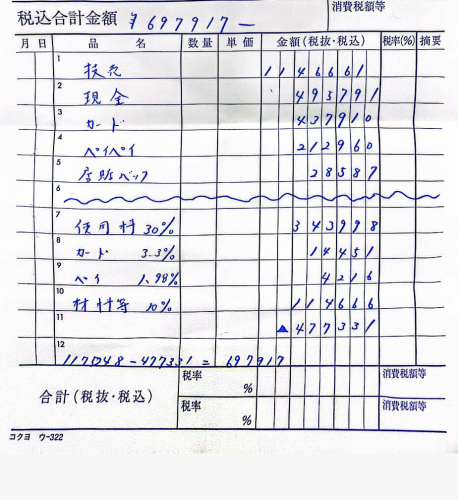 消費税額等
税込合計金額 ¥697917-
月 日 品 名 数量 単価 金額(税抜・税込) 税率(%) 摘要
1 技売 1146661
2 現金 495791
3 カード 437910
4 ペイペイ 212960
5 店販バック 28587
6
7 使用料 30% 343998
8 カード 3.3% 14451
9 ペイ 1.98% 4216
10 材料等 10% 114666
11 ▲477331
12 1175248-477331=697917
合計(税抜・税込) 税率 % 消費税額等
税率 % 消費税額等
コクヨ ウ-322